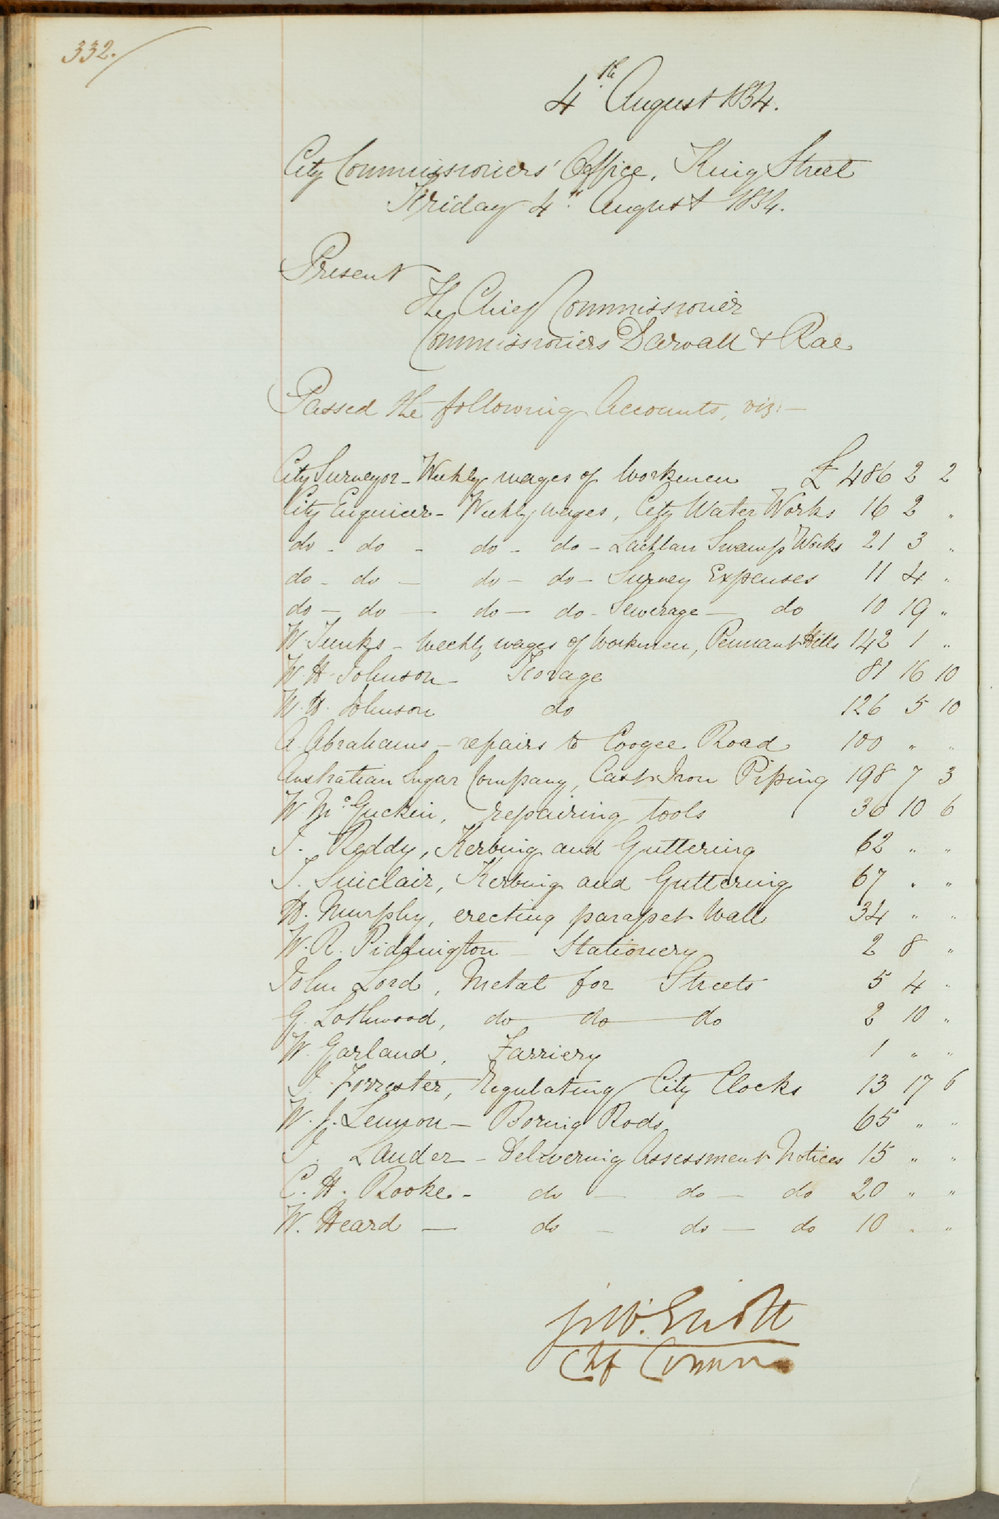 332.
4th August 1854.
City Commissioners' Office, King Street
Friday 4th August 1854.
Present
The Chief Commissioner
Commissioners Darvall & Rae
Passed the following Accounts, viz:—
City Surveyor - Weekly wages of Workmen £ 486 2 2
City Engineer - Weekly wages, City Water Works 16 2 "
do - do - do - do - Lachlan Swamp Works 21 3 "
do - do - do - do - Survey Expenses 11 4 "
do - do - do - do - Sewerage - do 10 19 "
W Tunks - Weekly wages of Workmen, Pennant Hills 142 1 "
W H Johnson - 81 16 10
W. H. Johnson do 126 5 10
A Abrahams - repairs to Coogee Road 100 " "
Australian Sugar Company, Cast Iron Piping 198 7 3
W McGuckin, repairing tools 36 10 6
J. Reddy, Kerbing and Guttering 62 " "
J. Sinclair, Kerbing and Guttering 67 " "
Murphy, erecting parapet Wall 34 " "
W. R. Piddington - Stationery 2 8 "
John Lord, Metal for Streets 5 4 "
G. Lothwood, do do do 2 10 "
W Garland, Farriery 1 " "
J. Forrester, Regulating City Clocks 13 17 6
W. J. Lennon - Boring Rods 65 " "
J. Lauder - Delivering Assessment Notices 15 " "
C. H. Rooke - do - do - do 20 " "
W. Heard - do - do - do 10 " "
Chf Commr